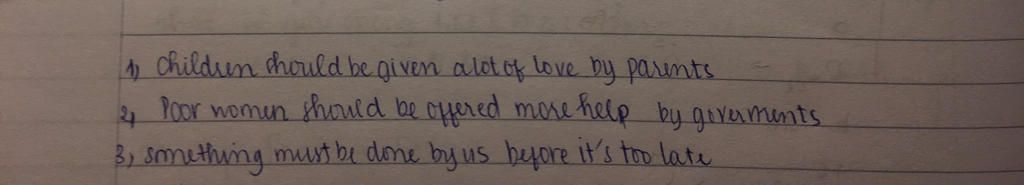 1) Children should be given a lot of love by parents
2) Poor women should be offered more help by goverments
3) something must be done by us before it's too late